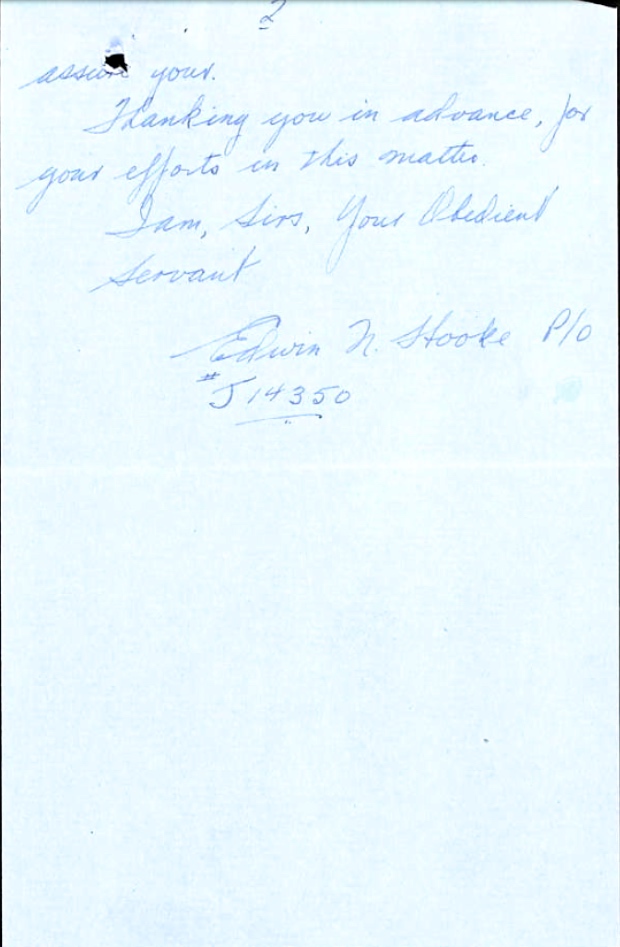 2
assure your.
Thanking you in advance, for
your efforts in this matter.
I am, Sirs, Your Obedient
Servant
Edwin N. Hooke P/O
# J14350